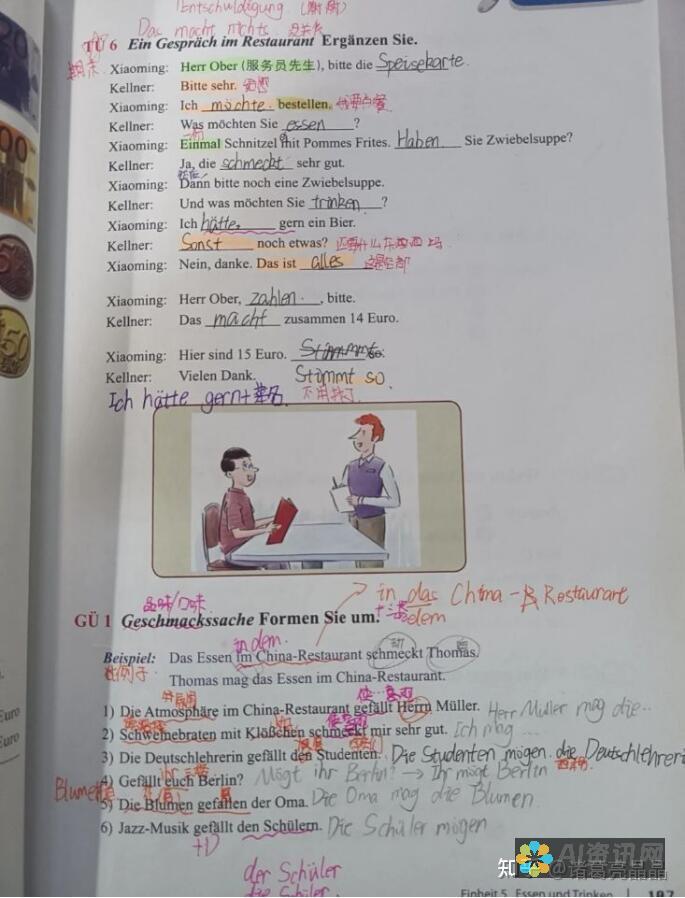 Entschuldigung
Das macht nichts. 没关系
TÜ 6 Ein Gespräch im Restaurant Ergänzen Sie.
Xiaoming: Herr Ober (服务员先生), bitte die Speisekarte.
Kellner: Bitte sehr.
Xiaoming: Ich möchte bestellen. 我要点餐
Kellner: Was möchten Sie essen ?
Xiaoming: Einmal Schnitzel mit Pommes Frites. Haben Sie Zwiebelsuppe?
Kellner: Ja, die schmeckt sehr gut.
Xiaoming: Dann bitte noch eine Zwiebelsuppe.
Kellner: Und was möchten Sie trinken ?
Xiaoming: Ich hätte gern ein Bier.
Kellner: Sonst noch etwas? 还要什么东西吗
Xiaoming: Nein, danke. Das ist alles
Xiaoming: Herr Ober, zahlen , bitte.
Kellner: Das macht zusammen 14 Euro.
Xiaoming: Hier sind 15 Euro.
Kellner: Vielen Dank. Stimmt so.
Ich hätte gern+ 不用找了
in das China- Restaurant
品味/口味 dem
GÜ 1 Geschmackssache Formen Sie um.
in dem
Beispiel: Das Essen im China-Restaurant schmeckt Thomas.
例子 Thomas mag das Essen im China-Restaurant.
1) Die Atmosphäre im China-Restaurant gefällt Herrn Müller. Herr Müller mag die..
2) Schweinebraten mit Klößchen schmeckt mir sehr gut. Ich mag ...
3) Die Deutschlehrerin gefällt den Studenten. Die Studenten mögen die Deutschlehreri
4) Gefällt euch Berlin? Mögt ihr Berlin? → Ihr mögt Berlin
Blume
5) Die Blumen gefallen der Oma. Die Oma mag die Blumen
6) Jazz-Musik gefällt den Schülern. Die Schüler mögen
+D
der Schüler
die Schüler.
Einheit 5 Essen und Trinken | 107
Euro
Euro
AI资讯网
知 @诸葛亮晶晶